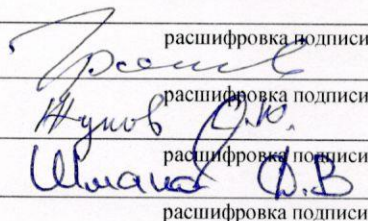 расшифровка подписи
расшифровка подписи
Жуков О.Ю.
расшифровка подписи
Д.В
расшифровка подписи